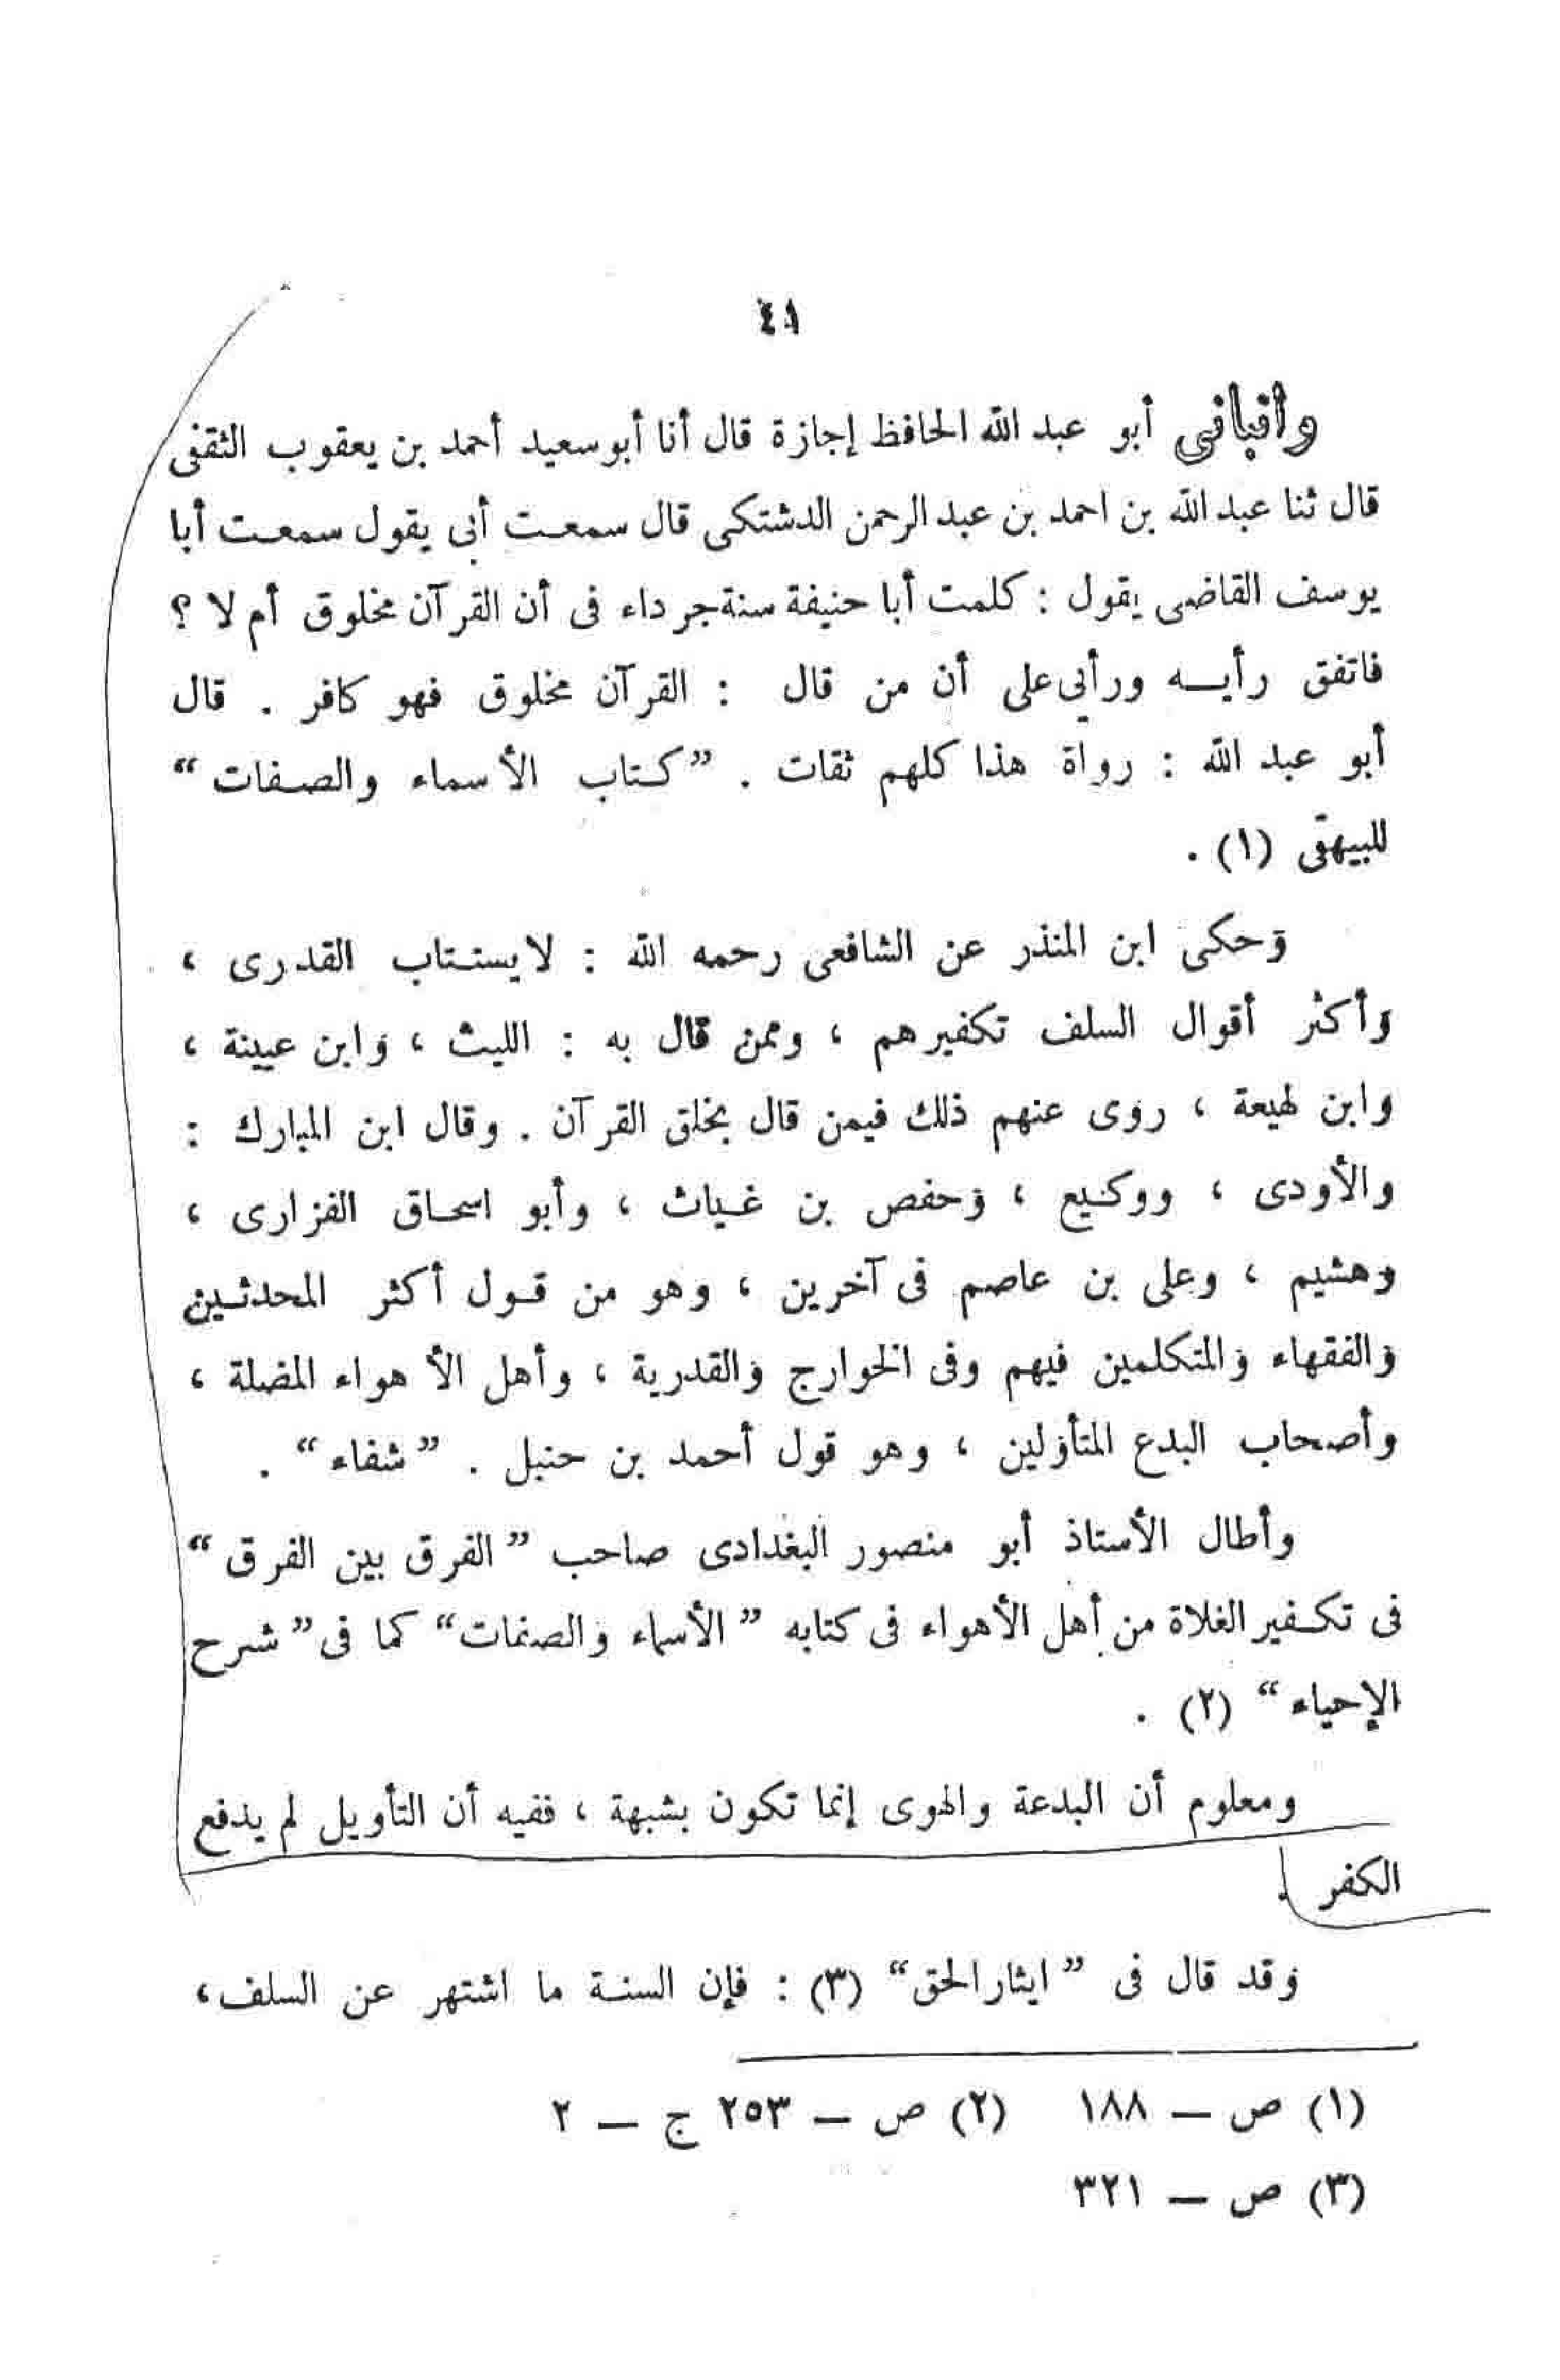 ٤١
وأنبأنى أبو عبد الله الحافظ إجازة قال أنا أبو سعيد أحمد بن يعقوب الثقفى
قال ثنا عبد الله بن احمد بن عبد الرحمن الدشتكى قال سمعت أبى يقول سمعت أبا
يوسف القاضى يقول : كلمت أبا حنيفة سنة جرداء فى أن القرآن مخلوق أم لا ؟
فاتفق رأيه ورأيى على أن من قال : القرآن مخلوق فهو كافر . قال
أبو عبد الله : رواة هذا كلهم ثقات . ”كتاب الأسماء والصفات“
للبيهقى (١) .
وحكى ابن المنذر عن الشافعى رحمه الله : لايستتاب القدرى ،
وأكثر أقوال السلف تكفيرهم ، وممن قال به : الليث ، وابن عيينة ،
وابن لهيعة ، روى عنهم ذلك فيمن قال بخلق القرآن . وقال ابن المبارك :
والأودى ، ووكيع ، وحفص بن غياث ، وأبو اسحاق الفزارى ،
وهشيم ، وعلى بن عاصم فى آخرين ، وهو من قول أكثر المحدثين
والفقهاء والمتكلمين فيهم وفى الخوارج والقدرية ، وأهل الأهواء المضلة ،
وأصحاب البدع المتأولين ، وهو قول أحمد بن حنبل . ”شفاء“ .
وأطال الأستاذ أبو منصور البغدادى صاحب ”الفرق بين الفرق“
فى تكفير الغلاة من أهل الأهواء فى كتابه ”الأسماء والصفات“ كما فى ”شرح
الإحياء“ (٢) .
ومعلوم أن البدعة والهوى إنما تكون بشبهة ، ففيه أن التأويل لم يدفع
الكفر .
وقد قال فى ”ايثار الحق“ (٣) : فإن السنة ما اشتهر عن السلف،
(١) ص — ١٨٨ (٢) ص — ٢٥٣ ج — ٢
(٣) ص — ٣٢١